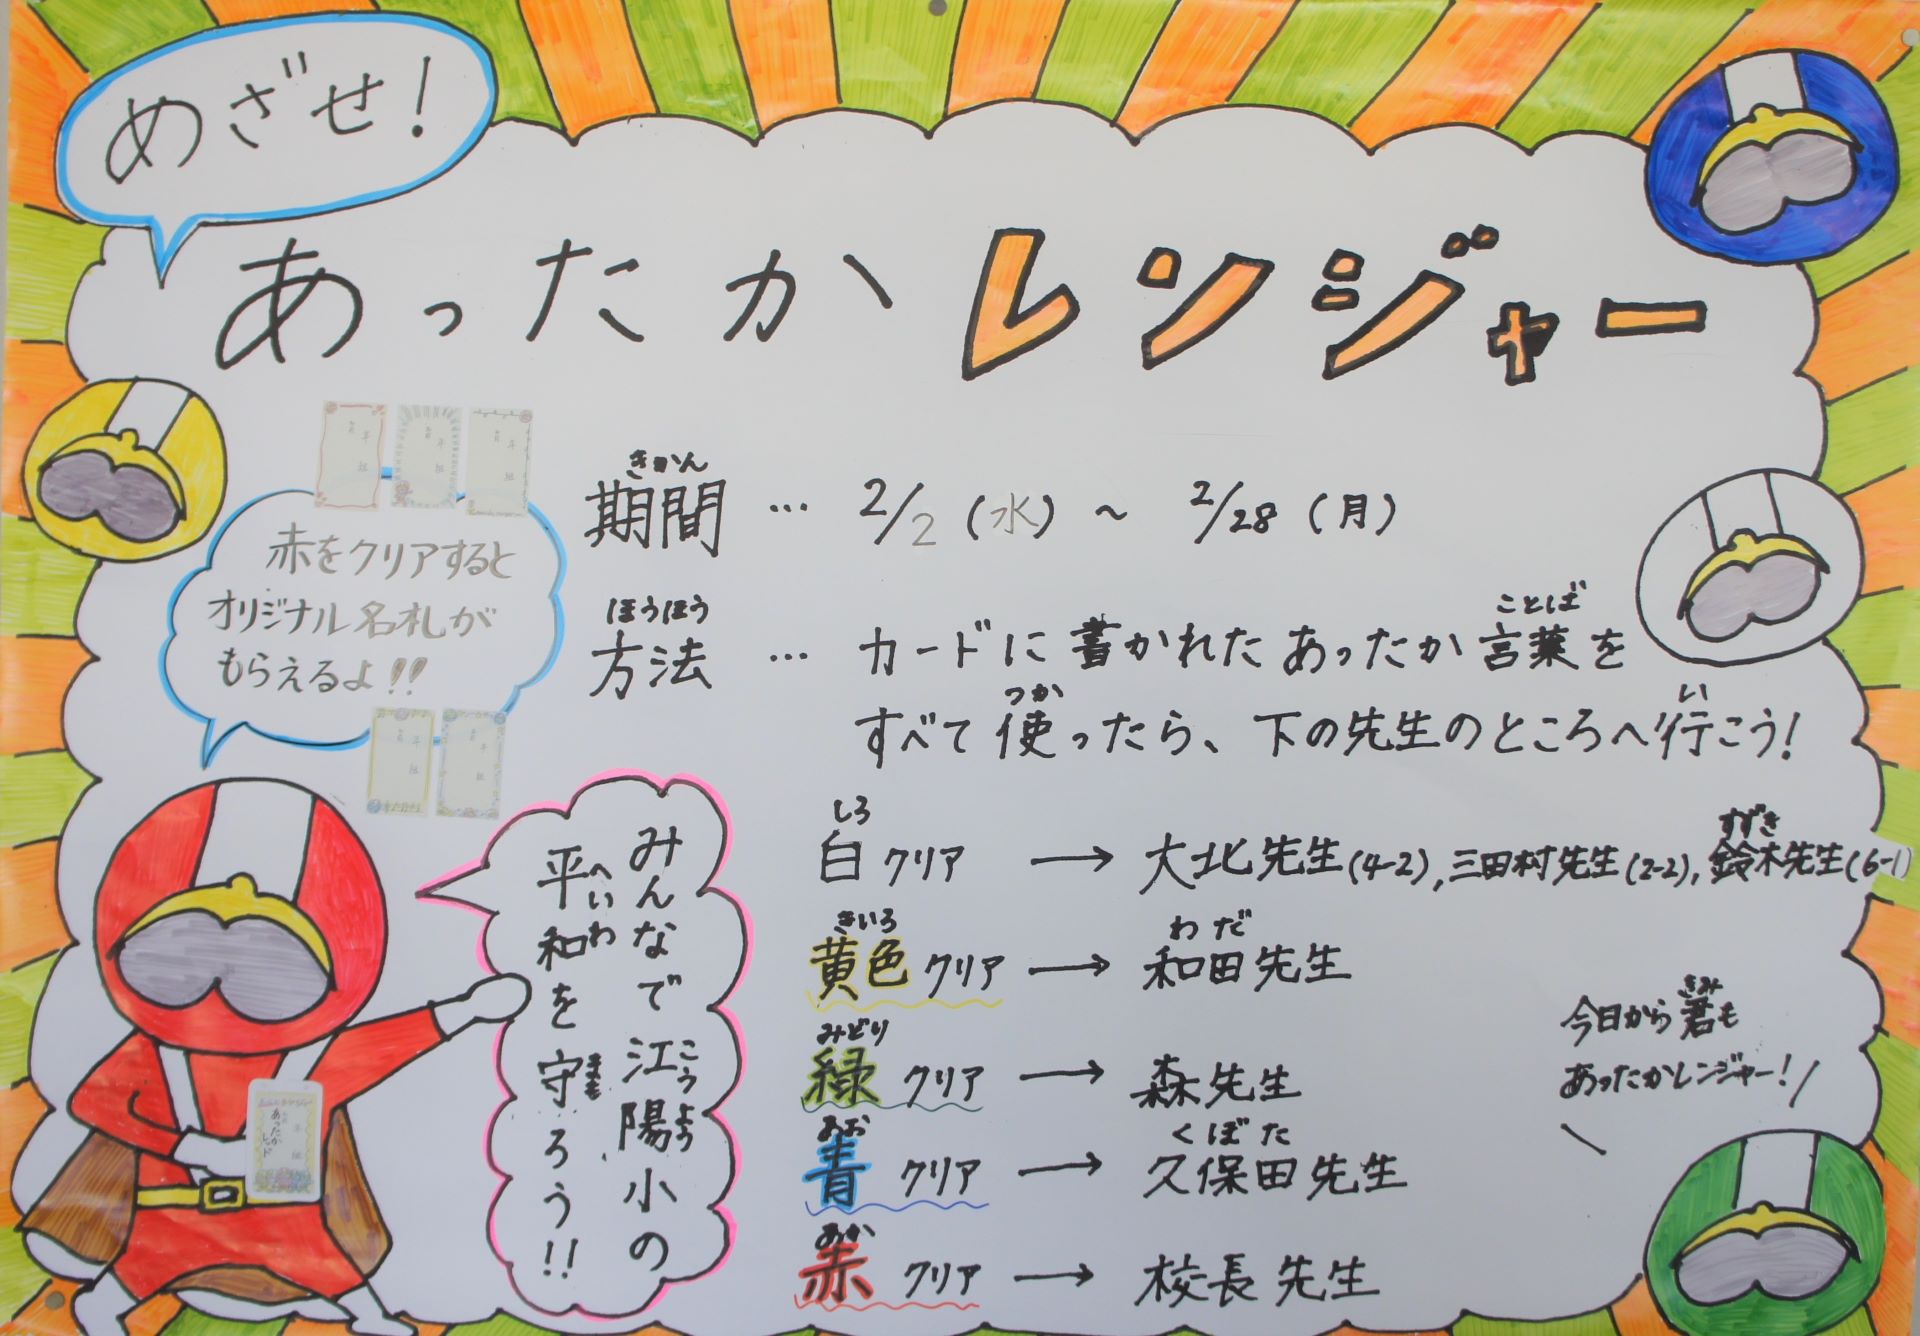 めざせ!
あったかレンジャー
赤をクリアすると
オリジナル名札が
もらえるよ!!
きかん
期間 … 2/2 (水) ~ 2/28 (月)
ほうほう
ことば
方法 … カードに書かれたあったか言葉を
つか
い
すべて使ったら、下の先生のところへ行こう!
しろ
すずき
白クリア → 大北先生(4-2),三田村先生(2-2),鈴木先生(6-1)
きいろ
わだ
黄色クリア → 和田先生
みどり
緑クリア → 森先生
あお
くぼた
青クリア → 久保田先生
あか
赤クリア → 校長先生
みんなで江陽小の
こうよう
平和を守ろう!!
へいわ
まも
きみ
今日から君も
あったかレンジャー!
あったか
レッド
年
組